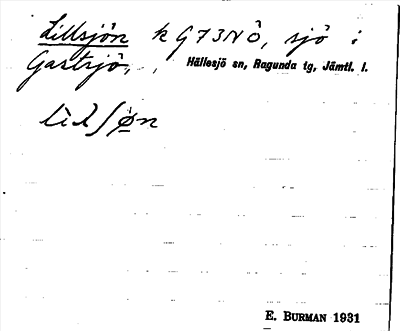 Lillsjön k G73NÖ, sjö i
Gastsjö, Hällesjö sn, Ragunda tg, Jämtl. l.
E. BURMAN 1931